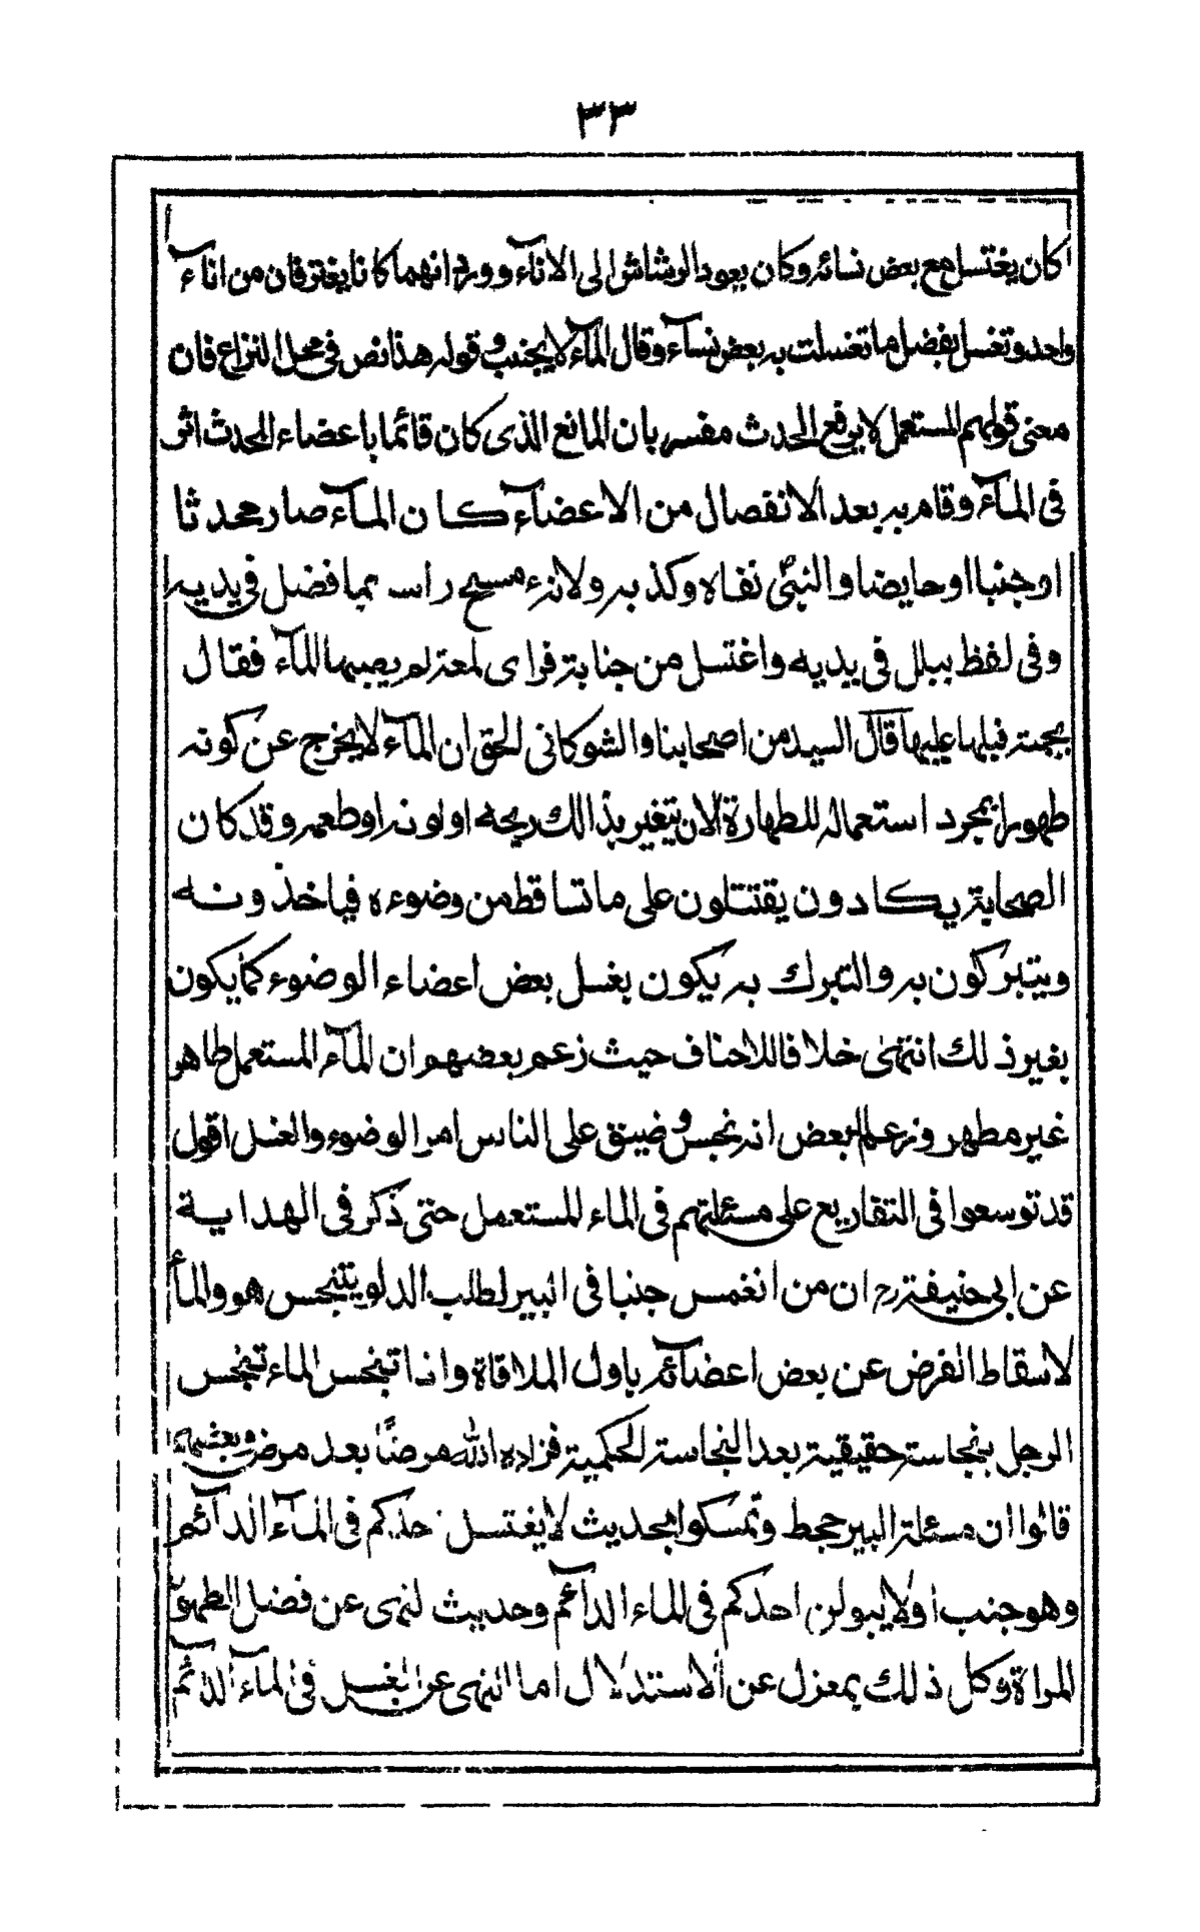 ٣٣
كان يغتسل مع بعض نسائه وكان يعود الرشاش الى الاناء وورد انهما كانا يغترفان من اناء
واحد وتغسل بفضل ما تغسلت به بعض نساء وقال الماء لا يجنب و قوله هذا نص فى محل النزاع فان
معنى قولهم المستعمل لا يرفع الحدث مفسر بان المانع الذى كان قائما با عضاء المحدث اثر
فى الماء وقام به بعد الانفصال من الاعضاء كان الماء صار محدثا
او جنبا او حايضا والنبى نفاه وكذبه ولانه مسح راسه بما فضل فى يديه
وفى لفظ ببلل فى يديه واغتسل من جنابة فراى لمعة لم يصبها الماء فقال
بجمته فبلها عليها قال السيد من اصحابنا والشوكانى الحق ان الماء لا يخرج عن كونه
طهورا بمجرد استعماله للطهارة الا ان يتغير بذالك ريحه او لونه او طعمه وقد كان
الصحابة يكادون يقتتلون على ما تساقط من وضوءه فياخذونه
ويتبركون به والتبرك به يكون بغسل بعض اعضاء الوضوء كما يكون
بغير ذلك انتهى خلافا للاحناف حيث زعم بعضهم ان الماء المستعمل طاهر
غير مطهر وزعم البعض انه نجس و ضيق على الناس امر الوضوء والغسل اقول
قد توسعوا فى التفاريع على مسئلتهم فى الماء المستعمل حتى ذكر فى الهداية
عن ابى حنيفة رح ان من انغمس جنبا فى البير لطلب الدلو يتنجس هو والماء
لاسقاط الفرض عن بعض اعضائه باول الملاقاة واذا تنجس الماء تنجس
الرجل بنجاسة حقيقية بعد النجاسة الحكمية فزاده الله مرضًا بعد مرض وبعضهم
قالوا ان مسئلة البير جحط وتمسكوا بحديث لا يغتسل احدكم فى الماء الدائم
وهو جنب او لا يبولن احدكم فى الماء الدائم وحديث نهى عن فضل الطهور
المراة وكل ذلك بمعزل عن الاستدلال اما النهى عن الغسل فى الماء الدائم